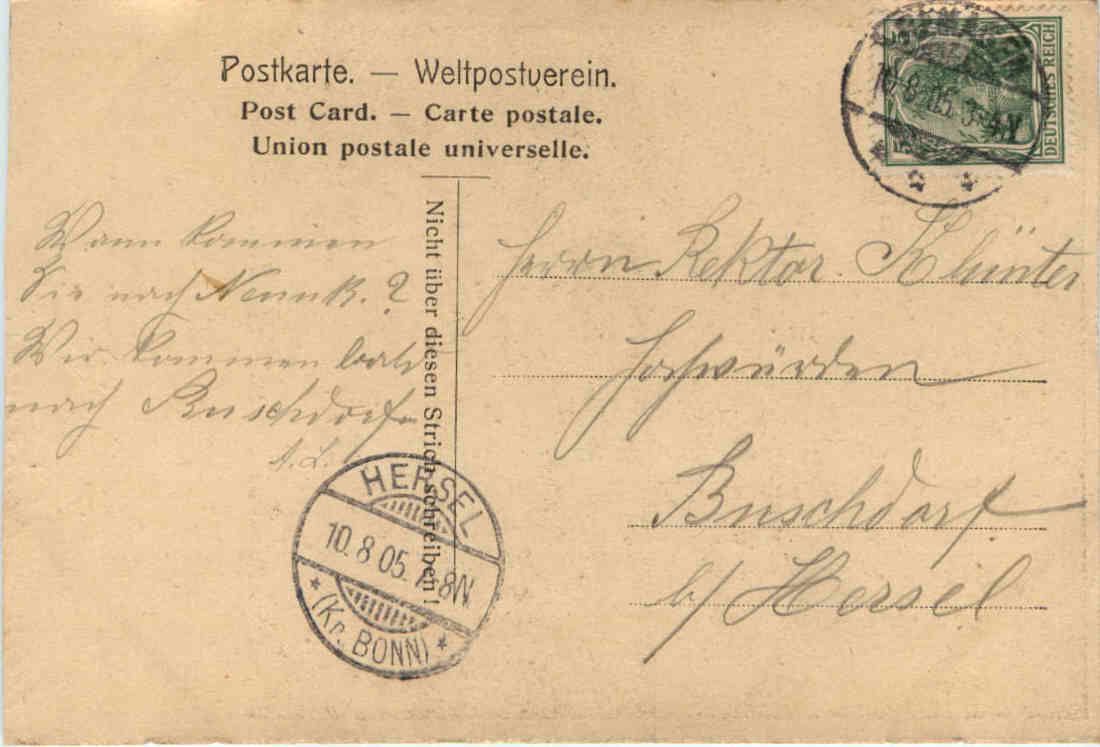 Postkarte. — Weltpostverein.
Post Card. — Carte postale.
Union postale universelle.
DEUTSCHES REICH
10.8.05.
Nicht über diesen Strich schreiben!
Wann kommen
Sie nach
Wir kommen bald
nach Buschdorf
A. L.
Herrn Rektor Klünter
Hochwürden
Buschdorf
b/ Hersel
HERSEL
10.8.05. 7-8N
* (Kr. BONN) *